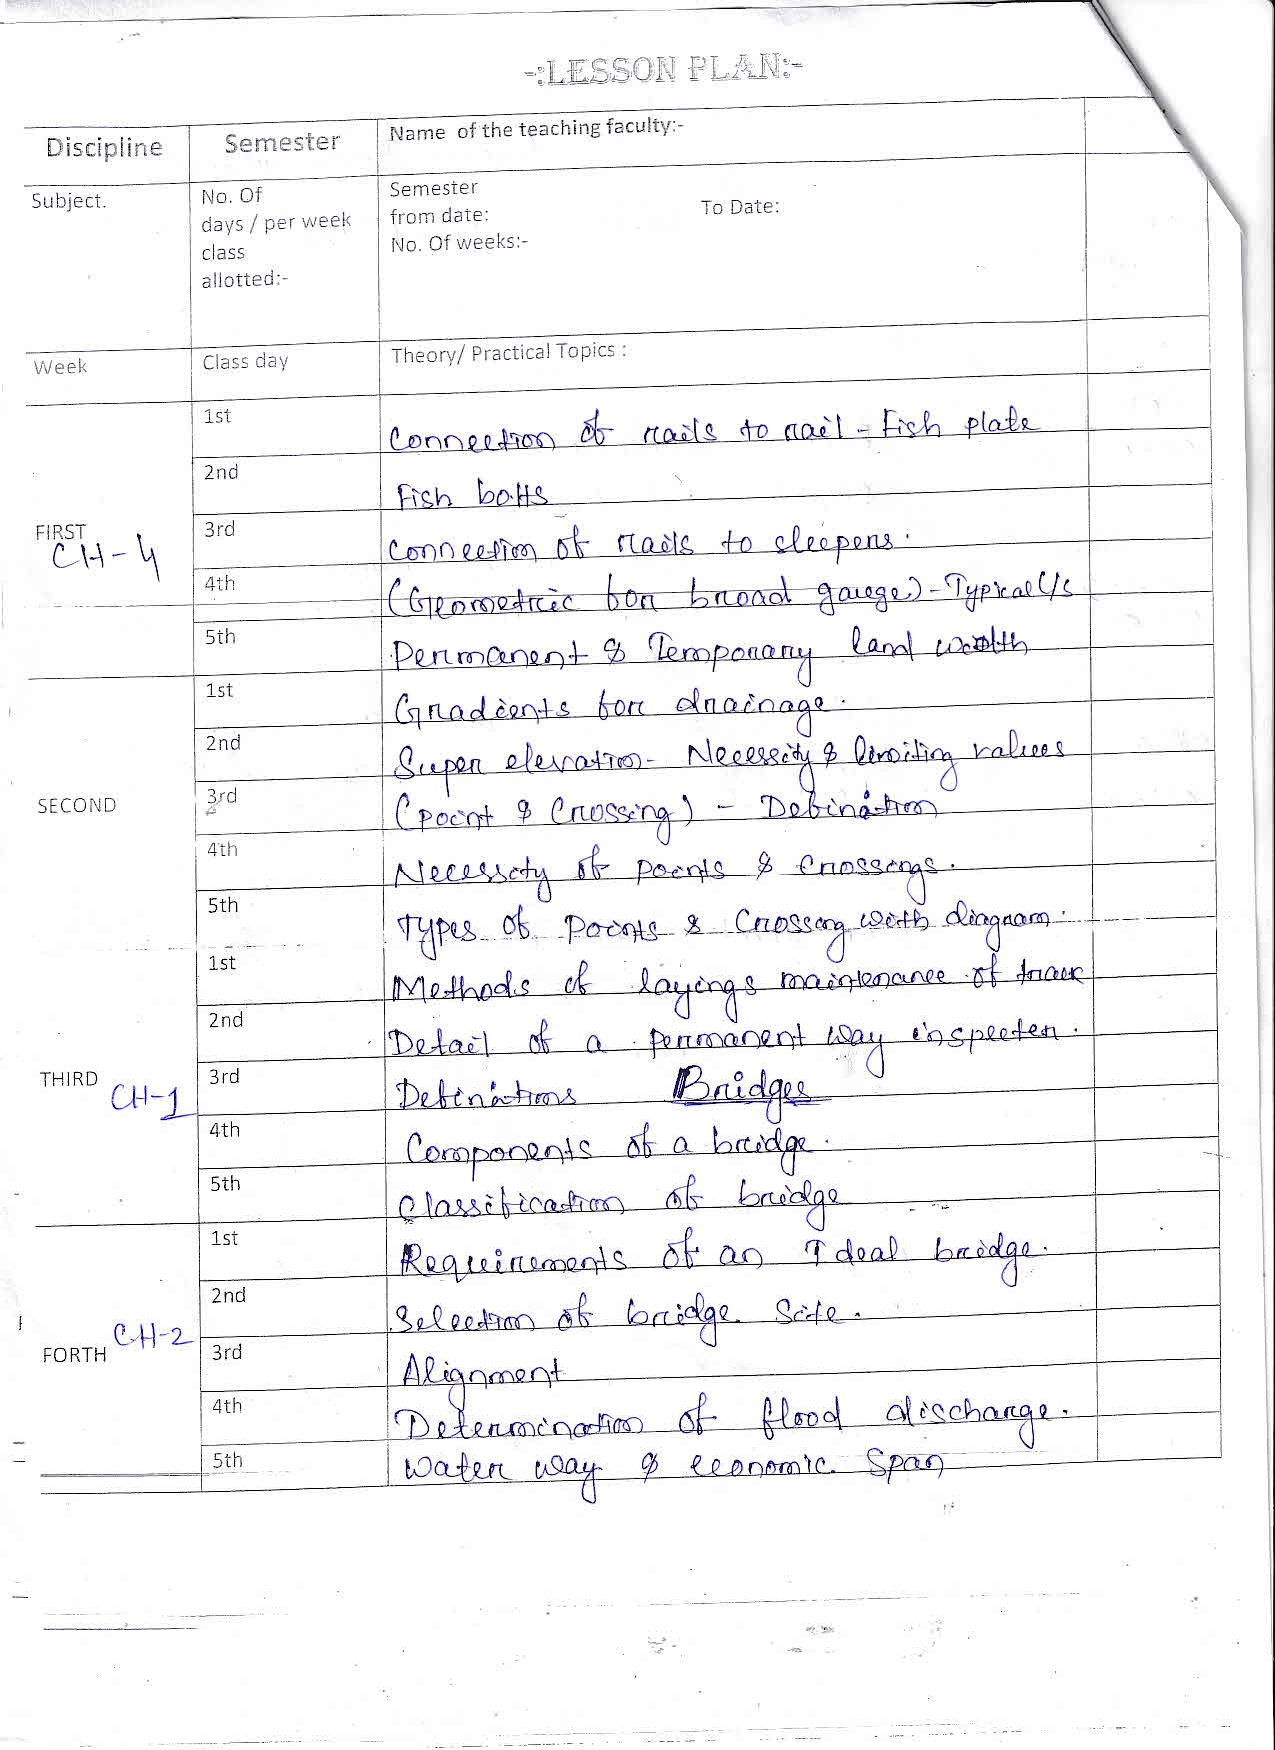 -:LESSON PLAN:-
Discipline
Semester
Name of the teaching faculty:-
Subject.
No. Of
days / per week
class
allotted:-
Semester
from date:
To Date:
No. Of weeks:-
Week
Class day
Theory/ Practical Topics :
FIRST
CH-4
1st
Connection of rails to rail - Fish plate
2nd
Fish bolts
3rd
Connection of rails to sleepers.
4th
(Geometric for broad gauge) - Typical C/s
5th
Permanent & Temporary land width
SECOND
1st
Gradients for drainage.
2nd
Super elevation - Necessity & limiting values
3rd
(Point & Crossing) - Defination
4th
Necessity of Points & Crossings.
5th
Types of Points & Crossing with diagram.
THIRD
CH-1
1st
Methods of laying & maintenance of track
2nd
Detail of a permanent way inspector.
3rd
Definations Bridges
4th
Components of a bridge.
5th
Classification of bridge
FORTH
CH-2
1st
Requirements of an Ideal bridge.
2nd
Selection of bridge Site.
3rd
Alignment
4th
Determination of flood discharge.
5th
Water way & economic Span